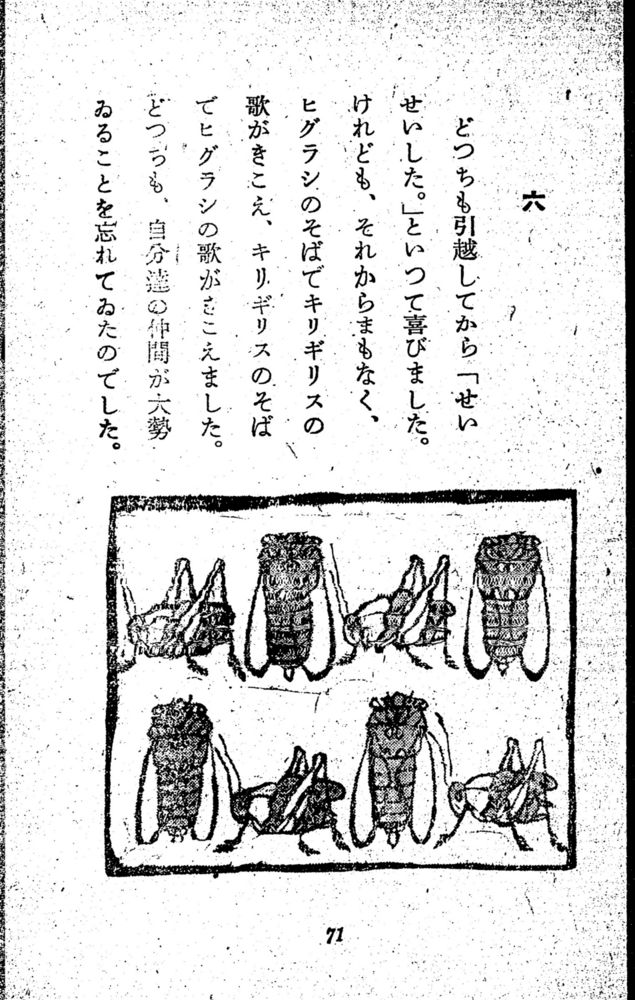 六
どつちも引越してから「せい
せいした。」といつて喜びました。
けれども、それからまもなく、
ヒグラシのそばでキリギリスの
歌がきこえ、キリギリスのそば
でヒグラシの歌がきこえました。
どつちも、自分達の仲間が大勢
ゐることを忘れてゐたのでした。
71